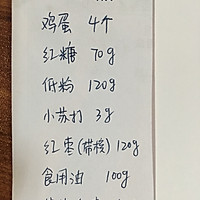 鸡蛋 4个
红糖 70g
低粉 120g
小苏打 3g
红枣(带核) 120g
食用油 100g